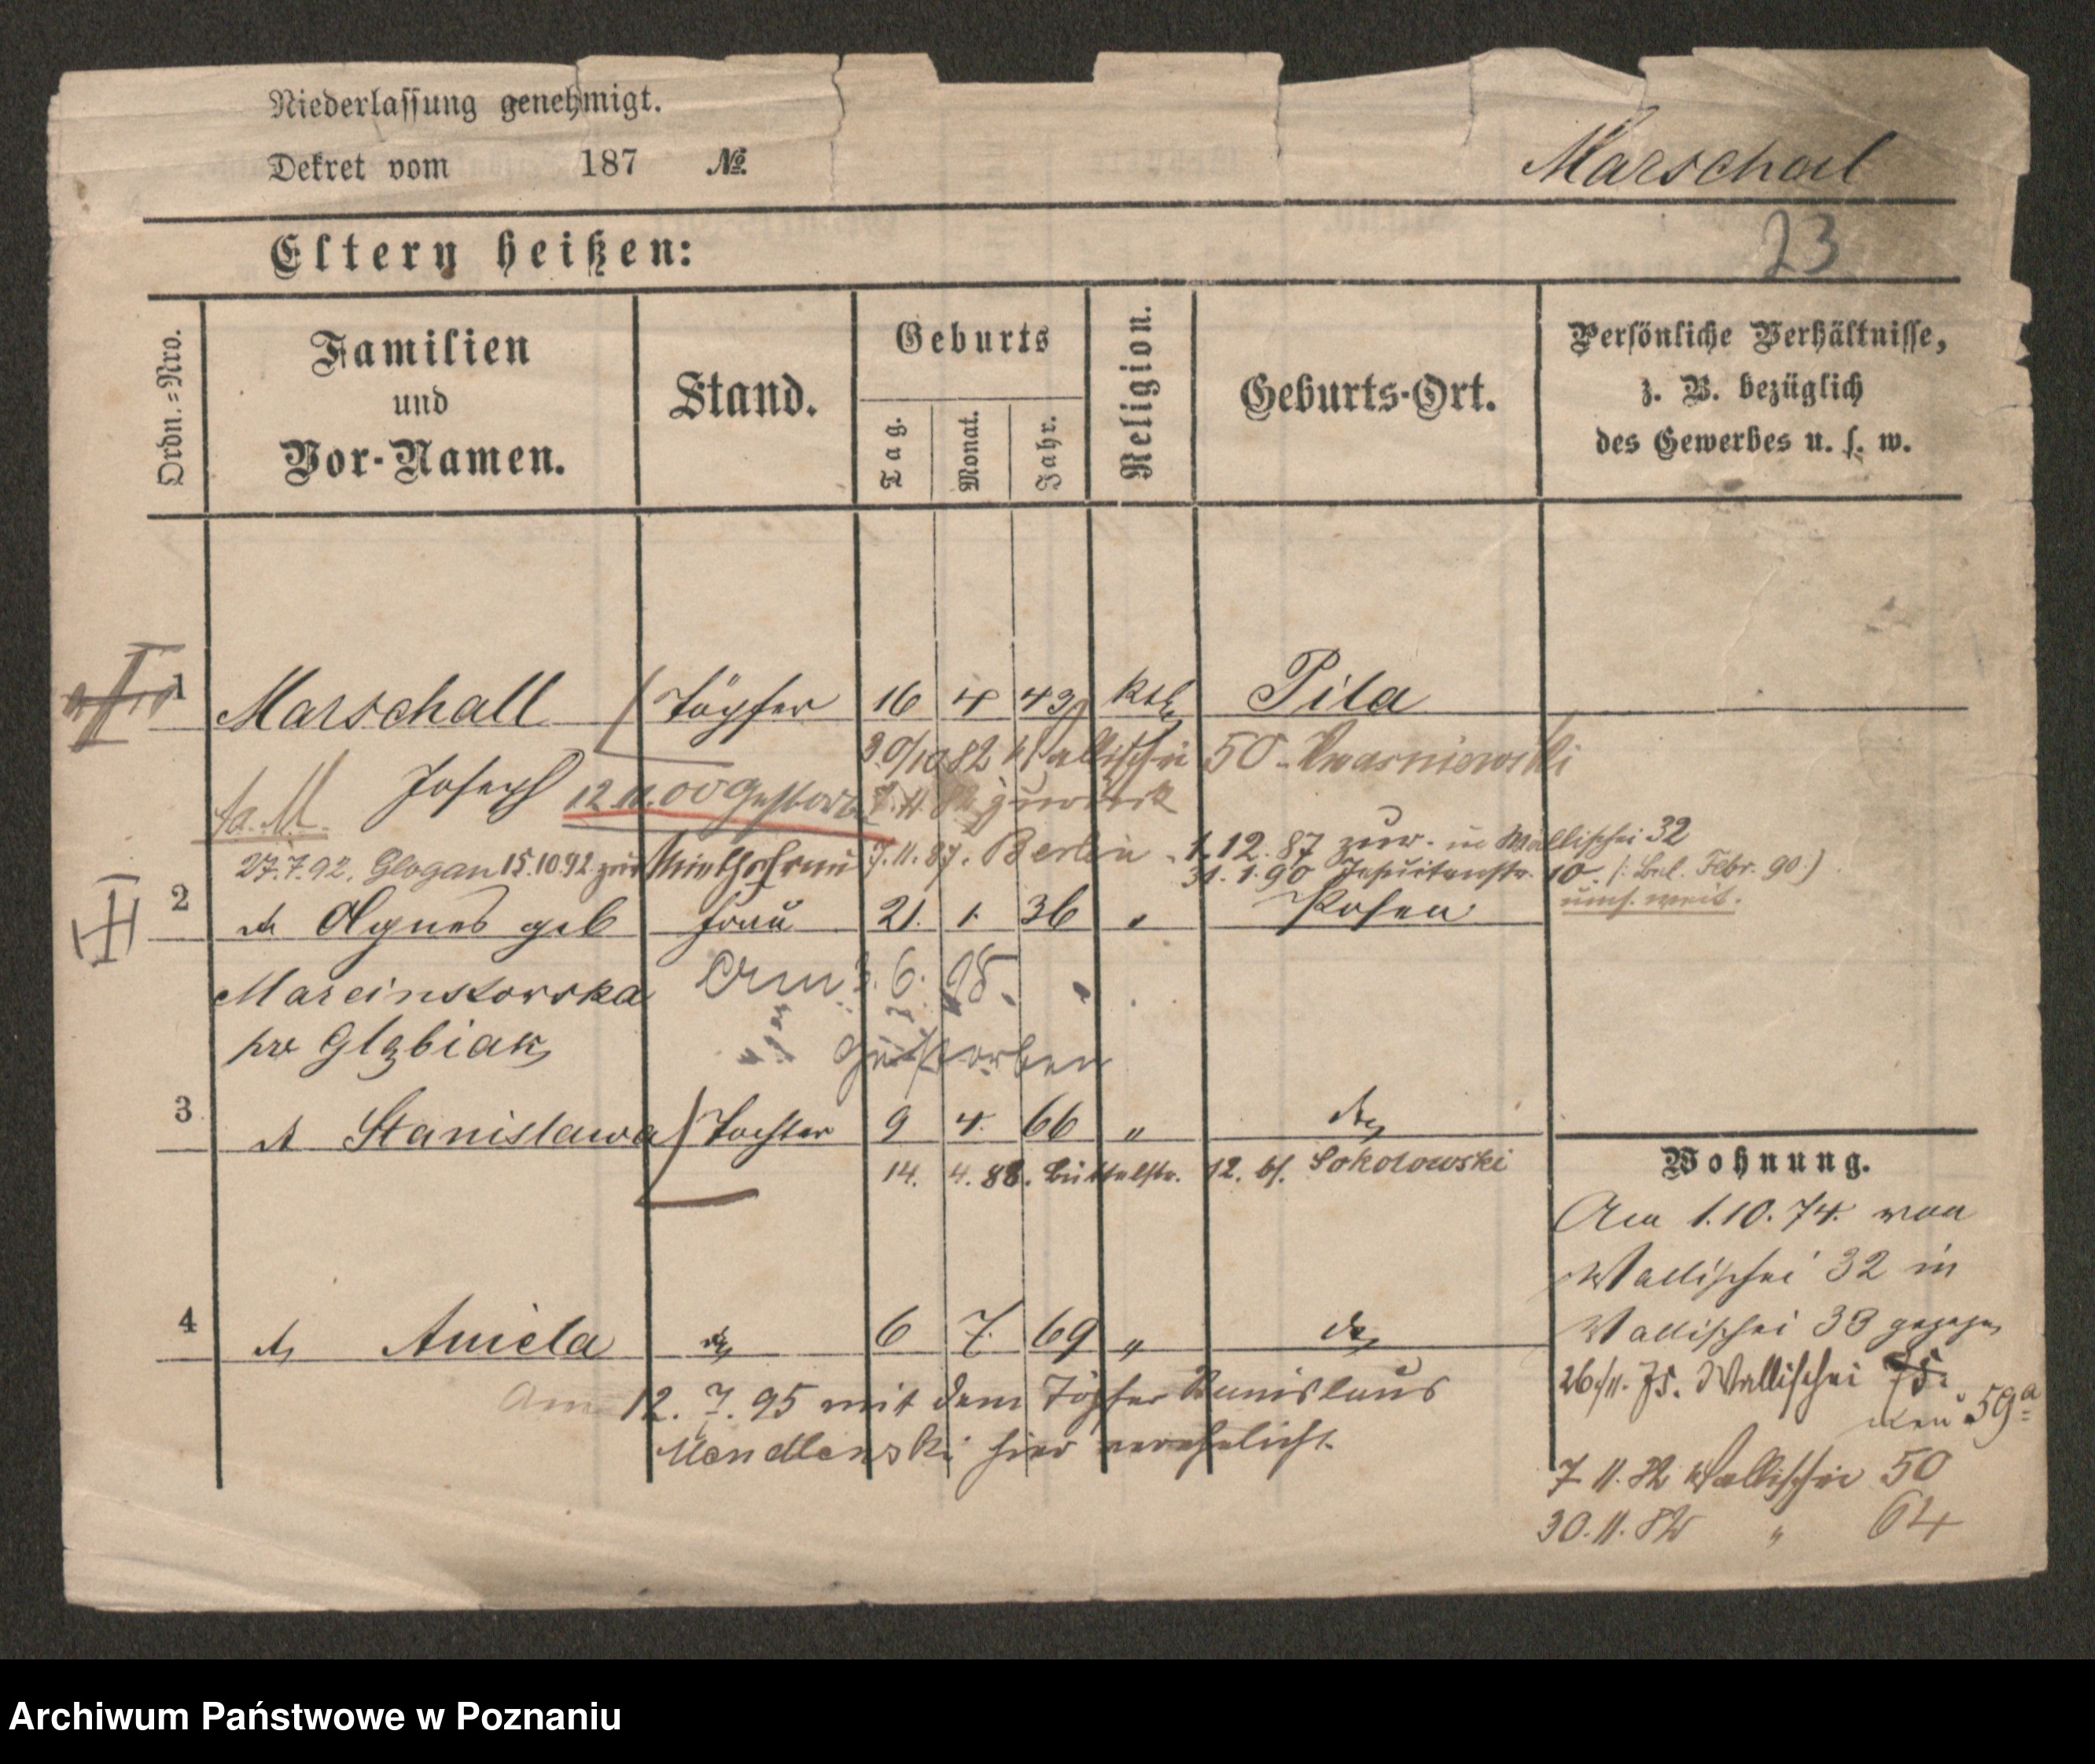 Niederlassung genehmigt.
Dekret vom 187 №.
Marschal
23
Eltern heißen:
Ordn.=Nro.
Familien
und
Vor-Namen.
Stand.
Geburts
Tag.
Monat.
Jahr.
Religion.
Geburts-Ort.
Persönliche Verhältnisse,
z. B. bezüglich
des Gewerbes u. s. w.
1 Marschall Töpfer 16 4 43 Kth Pila
30/10 82 Wallischei 50
Joseph 12.11.00 gestorb. zurück
27.7.92. Glogau 15.10.92 zur 7.11.87. Berlin 1.12.87 zur. in Wallischei 32
31.1.90 Jesuitenstr. 10. (: Febr. 90:)
2 Agnes geb Frau 21. 1. 36 " Posen
Marcinkowska Am 3.6.98.
gestorben
3 Stanislawa Tochter 9 4. 66 "
14. 4. 88. Büttelstr. 12. bs. Sokolowski
Wohnung.
Am 1.10.74. von
Wallischei 32 in
Wallischei 33 gezogen
4 Aniela 6 7. 69 "
26/11. 75. Wallischei 75.
neu 59a
Am 12. 7. 95 mit dem Töpfer
hier verehelicht.
7 11. 82 Wallischei 50
30.11.82 " 64
Archiwum Państwowe w Poznaniu